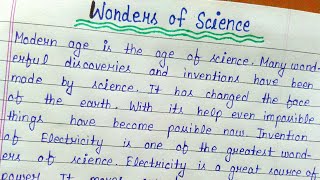 Wonders of Science
Modern age is the age of science. Many wond-
erful discoveries and inventions have been
made by science. It has changed the face
of the earth. With its help even impossible
things have become possible now. Invention
of Electricity is one of the greatest wond-
ers of science. Electricity is a great source of
power. It moves